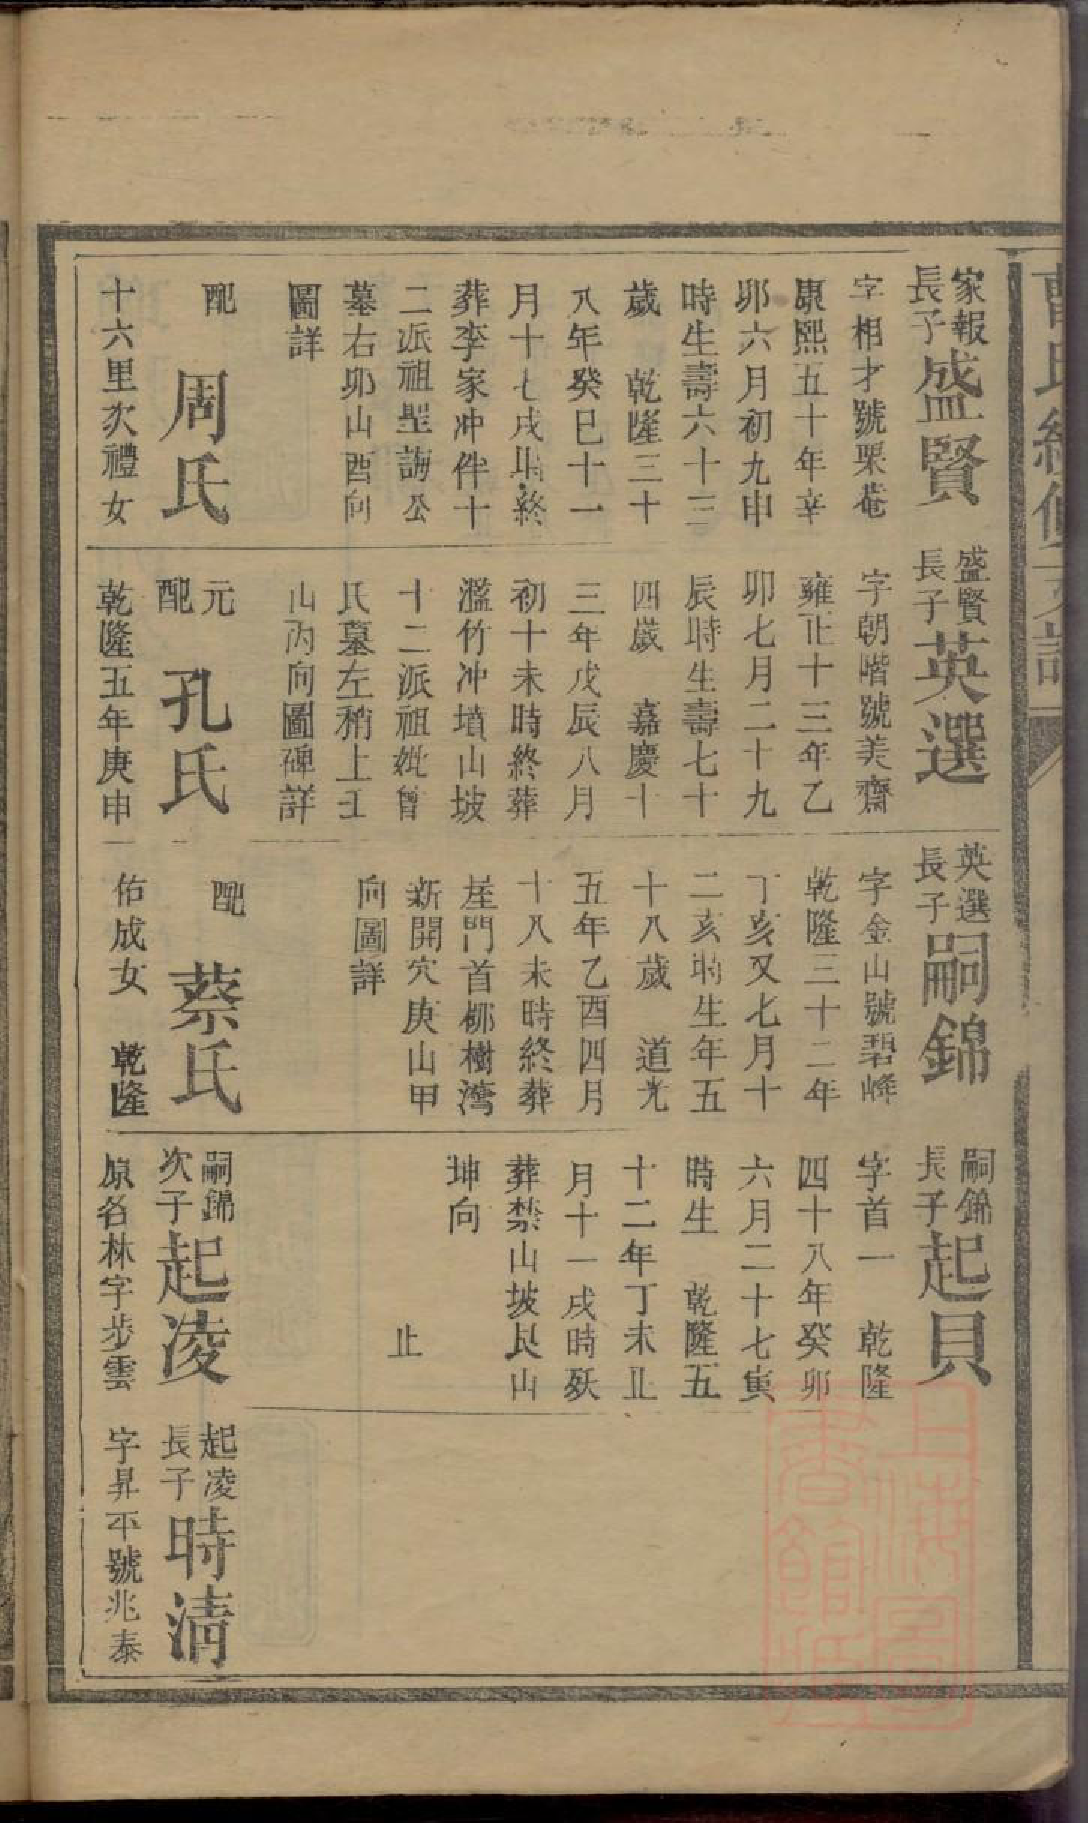 家報
長子
盛賢
字相才號栗菴
康熙五十年辛
卯六月初九申
時生壽六十三
歲　乾隆三十
八年癸巳十一
月十七戌時終
葬李家冲件十
二派祖聖誨公
墓右卯山酉向
圖詳
配
周氏
十六里次禮女
盛賢
長子
英選
字朝喈號美齋
雍正十三年乙
卯七月二十九
辰時生壽七十
四歲　嘉慶十
三年戊辰八月
初十未時終葬
濫竹冲墳山坡
十二派祖妣曾
氏墓左稍上壬
山丙向圖碑詳
元
配
孔氏
乾隆五年庚申
英選
長子
嗣錦
字金山號碧峰
乾隆三十二年
丁亥又七月十
二亥時生年五
十八歲　道光
五年乙酉四月
十八未時終葬
崖門首栁樹灣
新開穴庚山甲
向圖詳
配
蔡氏
佑成女　乾隆
嗣錦
長子
起貝
字首一　乾隆
四十八年癸卯
六月二十七寅
時生　乾隆五
十二年丁未正
月十一戌時殀
葬禁山坡艮山
坤向
止
嗣錦
次子
起凌
原名林字步雲
起凌
長子
時清
字昇平號兆泰